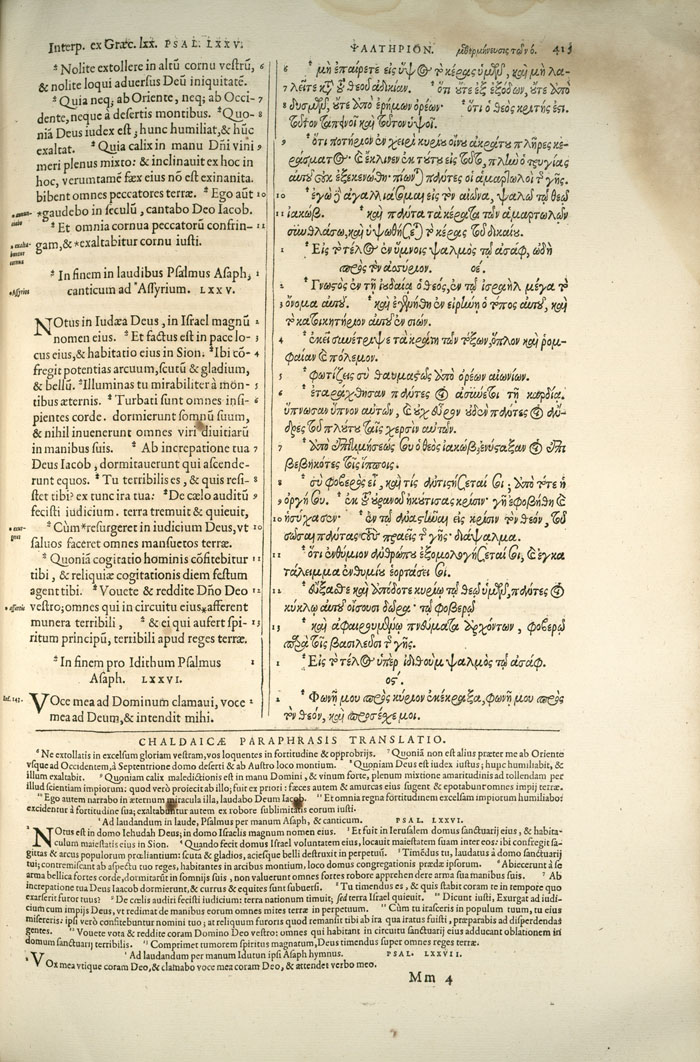 Interp. ex Græc. lxx. PSAL. LXXV.
⁶ Nolite extollere in altū cornu vestrū,
& nolite loqui aduersus Deū iniquitatē.
⁷ Quia neq; ab Oriente, neq; ab Occi-
dente, neque à desertis montibus. ⁸ Quo-
niā Deus iudex est, hunc humiliat, & hūc
exaltat. ⁹ Quia calix in manu Dñi vini
meri plenus mixto: & inclinauit ex hoc in
hoc, verumtamē fæx eius nō est exinanita.
bibent omnes peccatores terræ. ¹⁰ Ego aūt
*gaudebo in seculū, cantabo Deo Iacob.
¹¹ Et omnia cornua peccatorū confrin-
gam, & *exaltabitur cornu iusti.
¹ In finem in laudibus Psalmus Asaph,
canticum ad *Assyrium. LXXV.
NOtus in Iudæa Deus, in Israel magnū
nomen eius. ³ Et factus est in pace lo-
cus eius, & habitatio eius in Sion. ⁴ Ibi cō-
fregit potentias arcuum, scutū & gladium,
& bellū. ⁵ Illuminas tu mirabiliter à mōn-
tibus æternis. ⁶ Turbati sunt omnes insi-
pientes corde. dormierunt somnū suum,
& nihil inuenerunt omnes viri diuitiarū
in manibus suis. ⁷ Ab increpatione tua
Deus Iacob, dormitauerunt qui ascende-
runt equos. ⁸ Tu terribilis es, & quis resi-
stet tibi? ex tunc ira tua. ⁹ De cælo auditū
fecisti iudicium. terra tremuit & quieuit,
¹⁰ Cùm *resurgeret in iudicium Deus, vt
saluos faceret omnes mansuetos terræ.
¹¹ Quoniā cogitatio hominis cōfitebitur
tibi, & reliquiæ cogitationis diem festum
agent tibi. ¹² Vouete & reddite Dño Deo
vestro; omnes qui in circuitu eius *afferent
munera terribili, ¹³ & ei qui aufert spi-
ritum principū, terribili apud reges terræ.
¹ In finem pro Idithum Psalmus
Asaph. LXXVI.
VOce mea ad Dominum clamaui, voce
mea ad Deum, & intendit mihi.
ΨΑΛΤΗΡΙΟΝ. μεθερμήνευσις τῶν ό. 413
⁶ μὴ ἐπαίρετε εἰς ὕψος τὸ κέρας ὑμῶν, καὶ μὴ λα-
λεῖτε κατὰ τοῦ θεοῦ ἀδικίαν. ⁷ ὅτι οὔτε ἐξ ἐξόδων, οὔτε ἀπὸ
δυσμῶν, οὔτε ἀπὸ ἐρήμων ὀρέων. ⁸ ὅτι ὁ θεὸς κριτής ἐστι.
τοῦτον ταπεινοῖ καὶ τοῦτον ὑψοῖ.
⁹ ὅτι ποτήριον ἐν χειρὶ κυρίου οἴνου ἀκράτου πλῆρες κε-
ράσματος. καὶ ἔκλινεν ἐκ τούτου εἰς τοῦτο, πλὴν ὁ τρυγίας
αὐτοῦ οὐκ ἐξεκενώθη. πίονται πάντες οἱ ἁμαρτωλοὶ τῆς γῆς.
¹⁰ ἐγὼ δὲ ἀγαλλιάσομαι εἰς τὸν αἰῶνα, ψαλῶ τῷ θεῷ
ἰακώβ. ¹¹ καὶ πάντα τὰ κέρατα τῶν ἁμαρτωλῶν
συνθλάσω, καὶ ὑψωθήσεται τὸ κέρας τοῦ δικαίου.
¹ Εἰς τὸ τέλος ἐν ὕμνοις ψαλμὸς τῷ ἀσάφ, ᾠδὴ
πρὸς τὸν ἀσσύριον. οέ.
² Γνωστὸς ἐν τῇ ἰουδαίᾳ ὁ θεὸς, ἐν τῷ ἰσραὴλ μέγα τὸ
ὄνομα αὐτοῦ. ³ καὶ ἐγενήθη ἐν εἰρήνῃ ὁ τόπος αὐτοῦ, καὶ
τὸ κατοικητήριον αὐτοῦ ἐν σιών.
⁴ ἐκεῖ συνέτριψε τὰ κράτη τῶν τόξων, ὅπλον καὶ ῥομ-
φαίαν καὶ πόλεμον.
⁵ φωτίζεις σὺ θαυμαστῶς ἀπὸ ὀρέων αἰωνίων.
⁶ ἐταράχθησαν πάντες οἱ ἀσύνετοι τῇ καρδίᾳ.
ὕπνωσαν ὕπνον αὐτῶν, καὶ οὐχ εὗρον οὐδὲν πάντες οἱ ἄν-
δρες τοῦ πλούτου ταῖς χερσὶν αὐτῶν.
⁷ ἀπὸ ἐπιτιμήσεώς σου ὁ θεὸς ἰακώβ, ἐνύσταξαν οἱ ἐπι
βεβηκότες τοῖς ἵπποις.
⁸ σὺ φοβερὸς εἶ, καὶ τίς ἀντιστήσεταί σοι; ἀπὸ τότε ἡ
ὀργή σου. ⁹ ἐκ τοῦ οὐρανοῦ ἠκούτισας κρίσιν. γῆ ἐφοβήθη καὶ
ἡσύχασεν. ¹⁰ ἐν τῷ ἀναστῆναι εἰς κρίσιν τὸν θεόν, τοῦ
σῶσαι πάντας τοὺς πραεῖς τῆς γῆς. διάψαλμα.
¹¹ ὅτι ἐνθύμιον ἀνθρώπου ἐξομολογήσεταί σοι, καὶ ἐγκα
τάλειμμα ἐνθυμίου ἑορτάσει σοι.
¹² εὔξασθε καὶ ἀπόδοτε κυρίῳ τῷ θεῷ ὑμῶν, πάντες οἱ
κύκλῳ αὐτοῦ οἴσουσι δῶρα. τῷ φοβερῷ
¹³ καὶ ἀφαιρουμένῳ πνεύματα ἀρχόντων, φοβερῷ
παρὰ τοῖς βασιλεῦσι τῆς γῆς.
¹ Εἰς τὸ τέλος ὑπὲρ ἰδιθοὺμ ψαλμὸς τῷ ἀσάφ.
οϛ΄.
² Φωνῇ μου πρὸς κύριον ἐκέκραξα, φωνῇ μου πρὸς
τὸν θεόν, καὶ προσέσχε μοι.
CHALDAICÆ PARAPHRASIS TRANSLATIO.
⁶ Ne extollatis in excelsum gloriam vestram, vos loquentes in fortitudine & opprobrijs. ⁷ Quoniā non est alius præter me ab Oriente
vsque ad Occidentem, à Septentrione domo deserti & ab Austro loco montium. ⁸ Quoniam Deus est iudex iustus; hunc humiliabit, &
illum exaltabit. ⁹ Quoniam calix maledictionis est in manu Domini, & vinum forte, plenum mixtione amaritudinis ad tollendam per
illud scientiam impiorum: quod verò proiecit ab illo, fuit ex priori: fæces autem & amurcas eius sugent & epotabunt omnes impij terræ.
¹⁰ Ego autem narrabo in æternum miracula illa, laudabo Deum Iacob. ¹¹ Et omnia regna fortitudinem excelsam impiorum humiliabo:
excidentur à fortitudine sua; exaltabuntur autem ex robore sublimitatis eorum iusti.
¹ Ad laudandum in laude, Psalmus per manum Asaph, & canticum. PSAL. LXXVI.
NOtus est in domo Iehudah Deus; in domo Israelis magnum nomen eius. ³ Et fuit in Ierusalem domus sanctuarij eius, & habita-
culum maiestatis eius in Sion. ⁴ Quando fecit domus Israel voluntatem eius, locauit maiestatem suam inter eos: ibi confregit sa-
gittas & arcus populorum præliantium: scuta & gladios, aciesque belli destruxit in perpetuū. ⁵ Timēdus tu, laudatus à domo sanctuarij
tui; contremiscunt ab aspectu tuo reges, habitantes in arcibus montium, loco domus congregationis prædæ ipsorum. ⁶ Abiecerunt à se
arma bellica fortes corde, dormitarūt in somnijs suis, non valuerunt omnes fortes robore apprehendere arma sua manibus suis. ⁷ Ab
increpatione tua Deus Iaacob dormierunt, & currus & equites sunt subuersi. ⁸ Tu timendus es, & quis stabit coram te in tempore quo
exarserit furor tuus? ⁹ De cælis audiri fecisti iudicium: terra nationum timuit; sed terra Israel quieuit. ¹⁰ Dicunt iusti, Exurgat ad iudi-
cium cum impijs Deus, vt redimat de manibus eorum omnes mites terræ in perpetuum. ¹¹ Cùm tu irasceris in populum tuum, tu eius
misereris: ipsi verò confitebuntur nomini tuo; at reliquum furoris quod remansit tibi ab ira qua iratus fuisti, præparabis ad disperdendas
gentes. ¹² Vouete vota & reddite coram Domino Deo vestro: omnes qui habitant in circuitu sanctuarij eius adducant oblationem in
domum sanctuarij terribilis. ¹³ Comprimet tumorem spiritus magnatum, Deus timendus super omnes reges terræ.
¹ Ad laudandum per manum Idutun ipsi Asaph hymnus. PSAL. LXXVII.
VOx mea vtique coram Deo, & clamabo voce mea coram Deo, & attendet verbo meo.
Mm 4